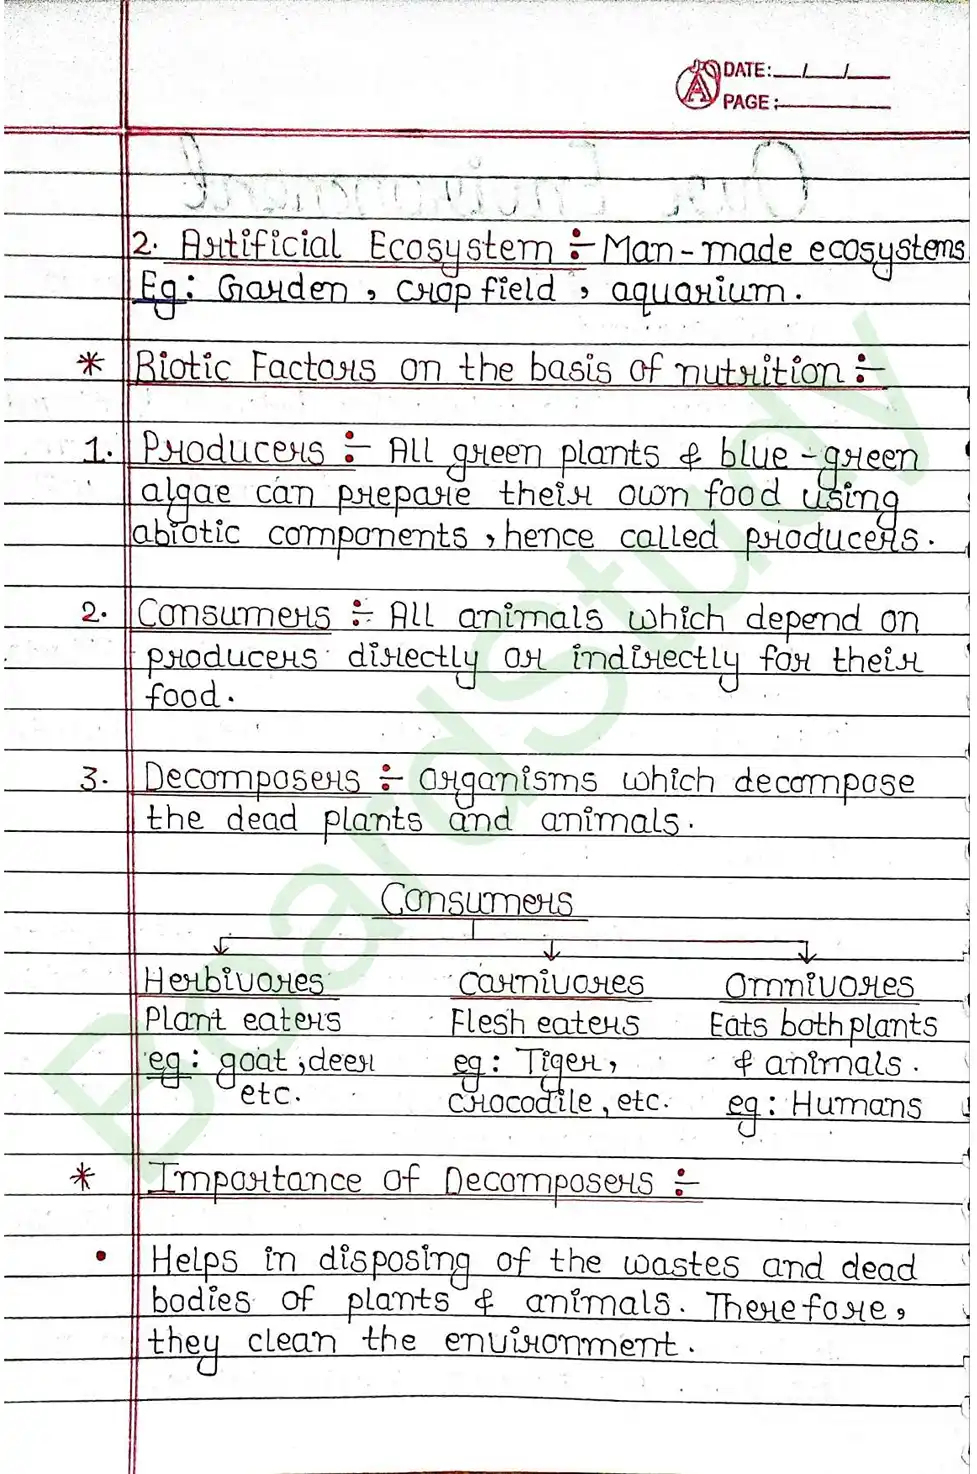 DATE: __/__/__
PAGE: ______
Our Environment
2. Artificial Ecosystem :- Man-made ecosystems
Eg: Garden, crop field, aquarium.
* Biotic Factors on the basis of nutrition :-
1. Producers :- All green plants & blue-green
algae can prepare their own food using
abiotic components, hence called producers.
2. Consumers :- All animals which depend on
producers directly or indirectly for their
food.
3. Decomposers :- Organisms which decompose
the dead plants and animals.
Consumers
Herbivores Carnivores Omnivores
Plant eaters Flesh eaters Eats both plants
eg: goat, deer eg: Tiger, & animals.
etc. crocodile, etc. eg: Humans
* Importance of Decomposers :-
• Helps in disposing of the wastes and dead
bodies of plants & animals. Therefore,
they clean the environment.
BoardStudy